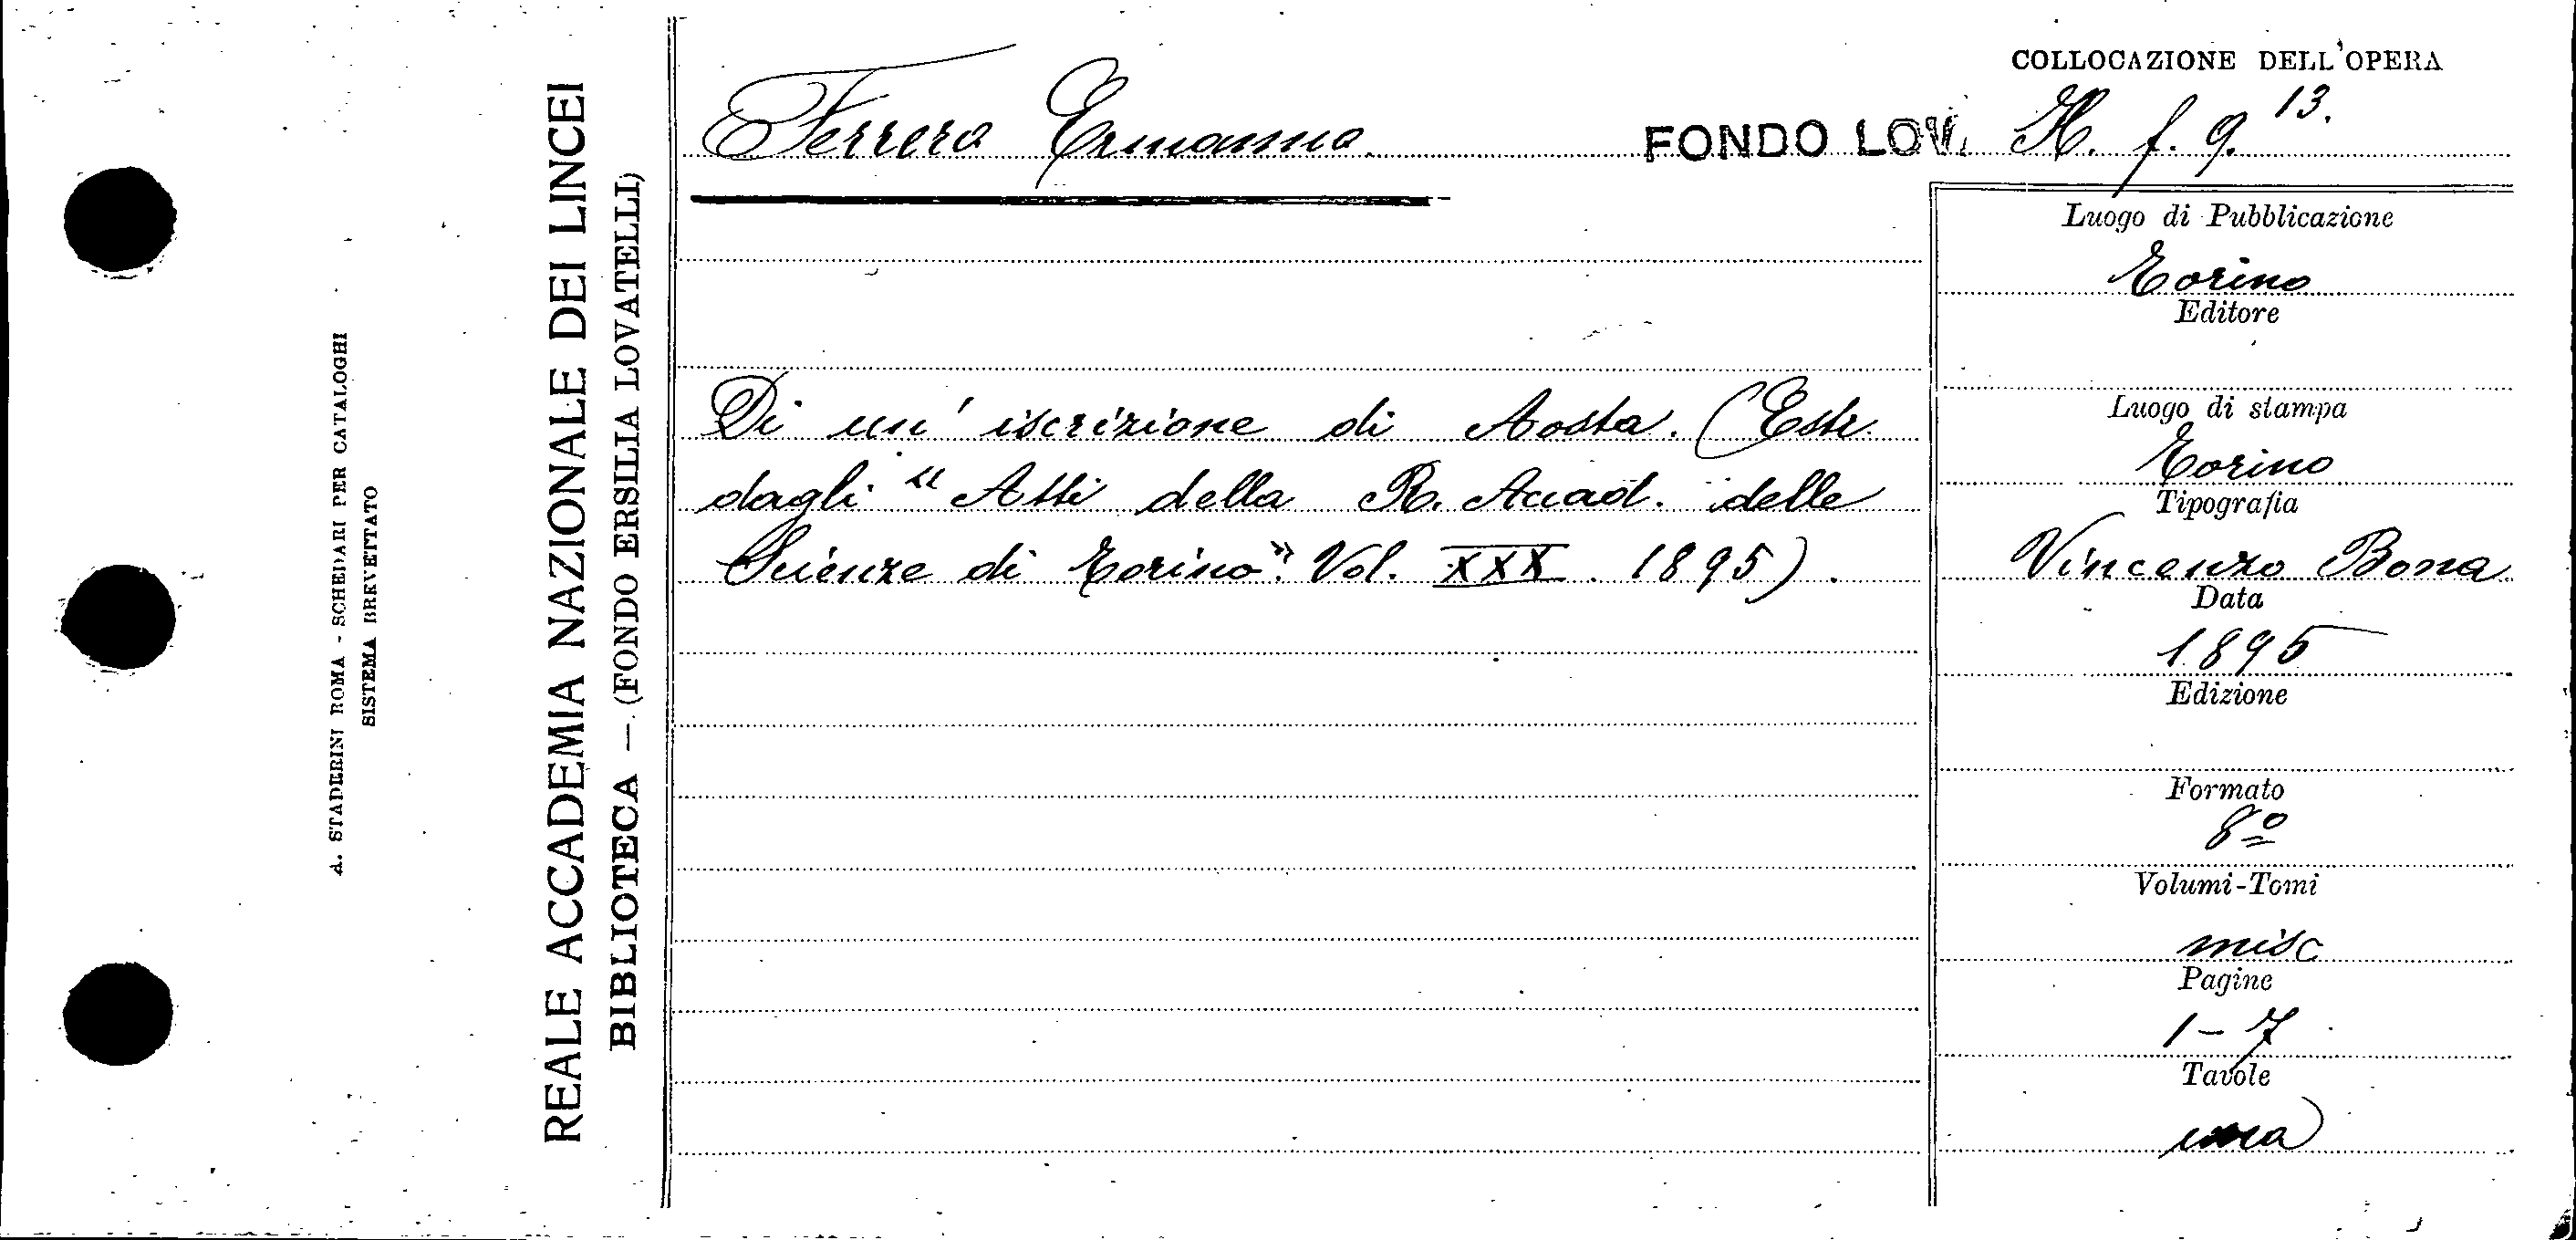 A. STADERINI ROMA - SCHEDARI PER CATALOGHI
SISTEMA BREVETTATO
REALE ACCADEMIA NAZIONALE DEI LINCEI
BIBLIOTECA — (FONDO ERSILIA LOVATELLI)
COLLOCAZIONE DELL'OPERA
Ferrero Ermanno
FONDO LOV. H. f. 9. 13.
Di un' iscrizione di Aosta. (Estr.
dagli "Atti della R. Accad. delle
Scienze di Torino". Vol. XXX. 1895).
Luogo di Pubblicazione
Torino
Editore
Luogo di stampa
Torino
Tipografia
Vincenzo Bona
Data
1895
Edizione
Formato
8º
Volumi-Tomi
misc
Pagine
1-7
Tavole
una